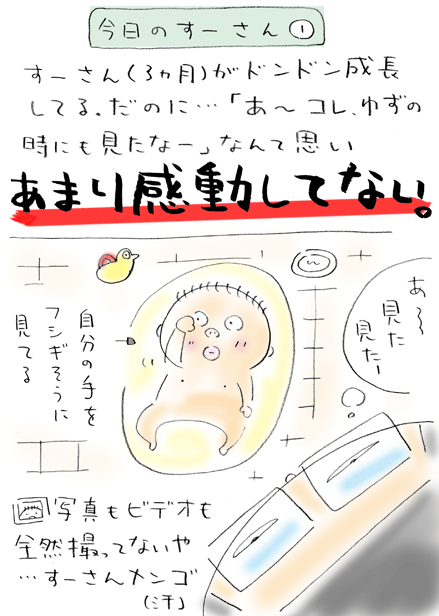 今日のすーさん①
すーさん(3ヵ月)がドンドン成長
してる。だのに…「あ〜コレ、ゆずの
時にも見たなー」なんて思い
あまり感動してない。
あ〜
見た
見たー
自分の手を
フシギそうに
見てる
写真もビデオも
全然撮ってないや
…すーさんメンゴ
(汗)